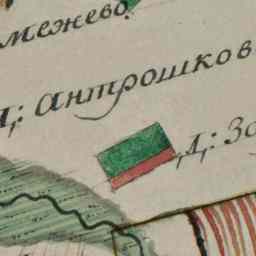 межево
Д: Антрошков
Д: Зо